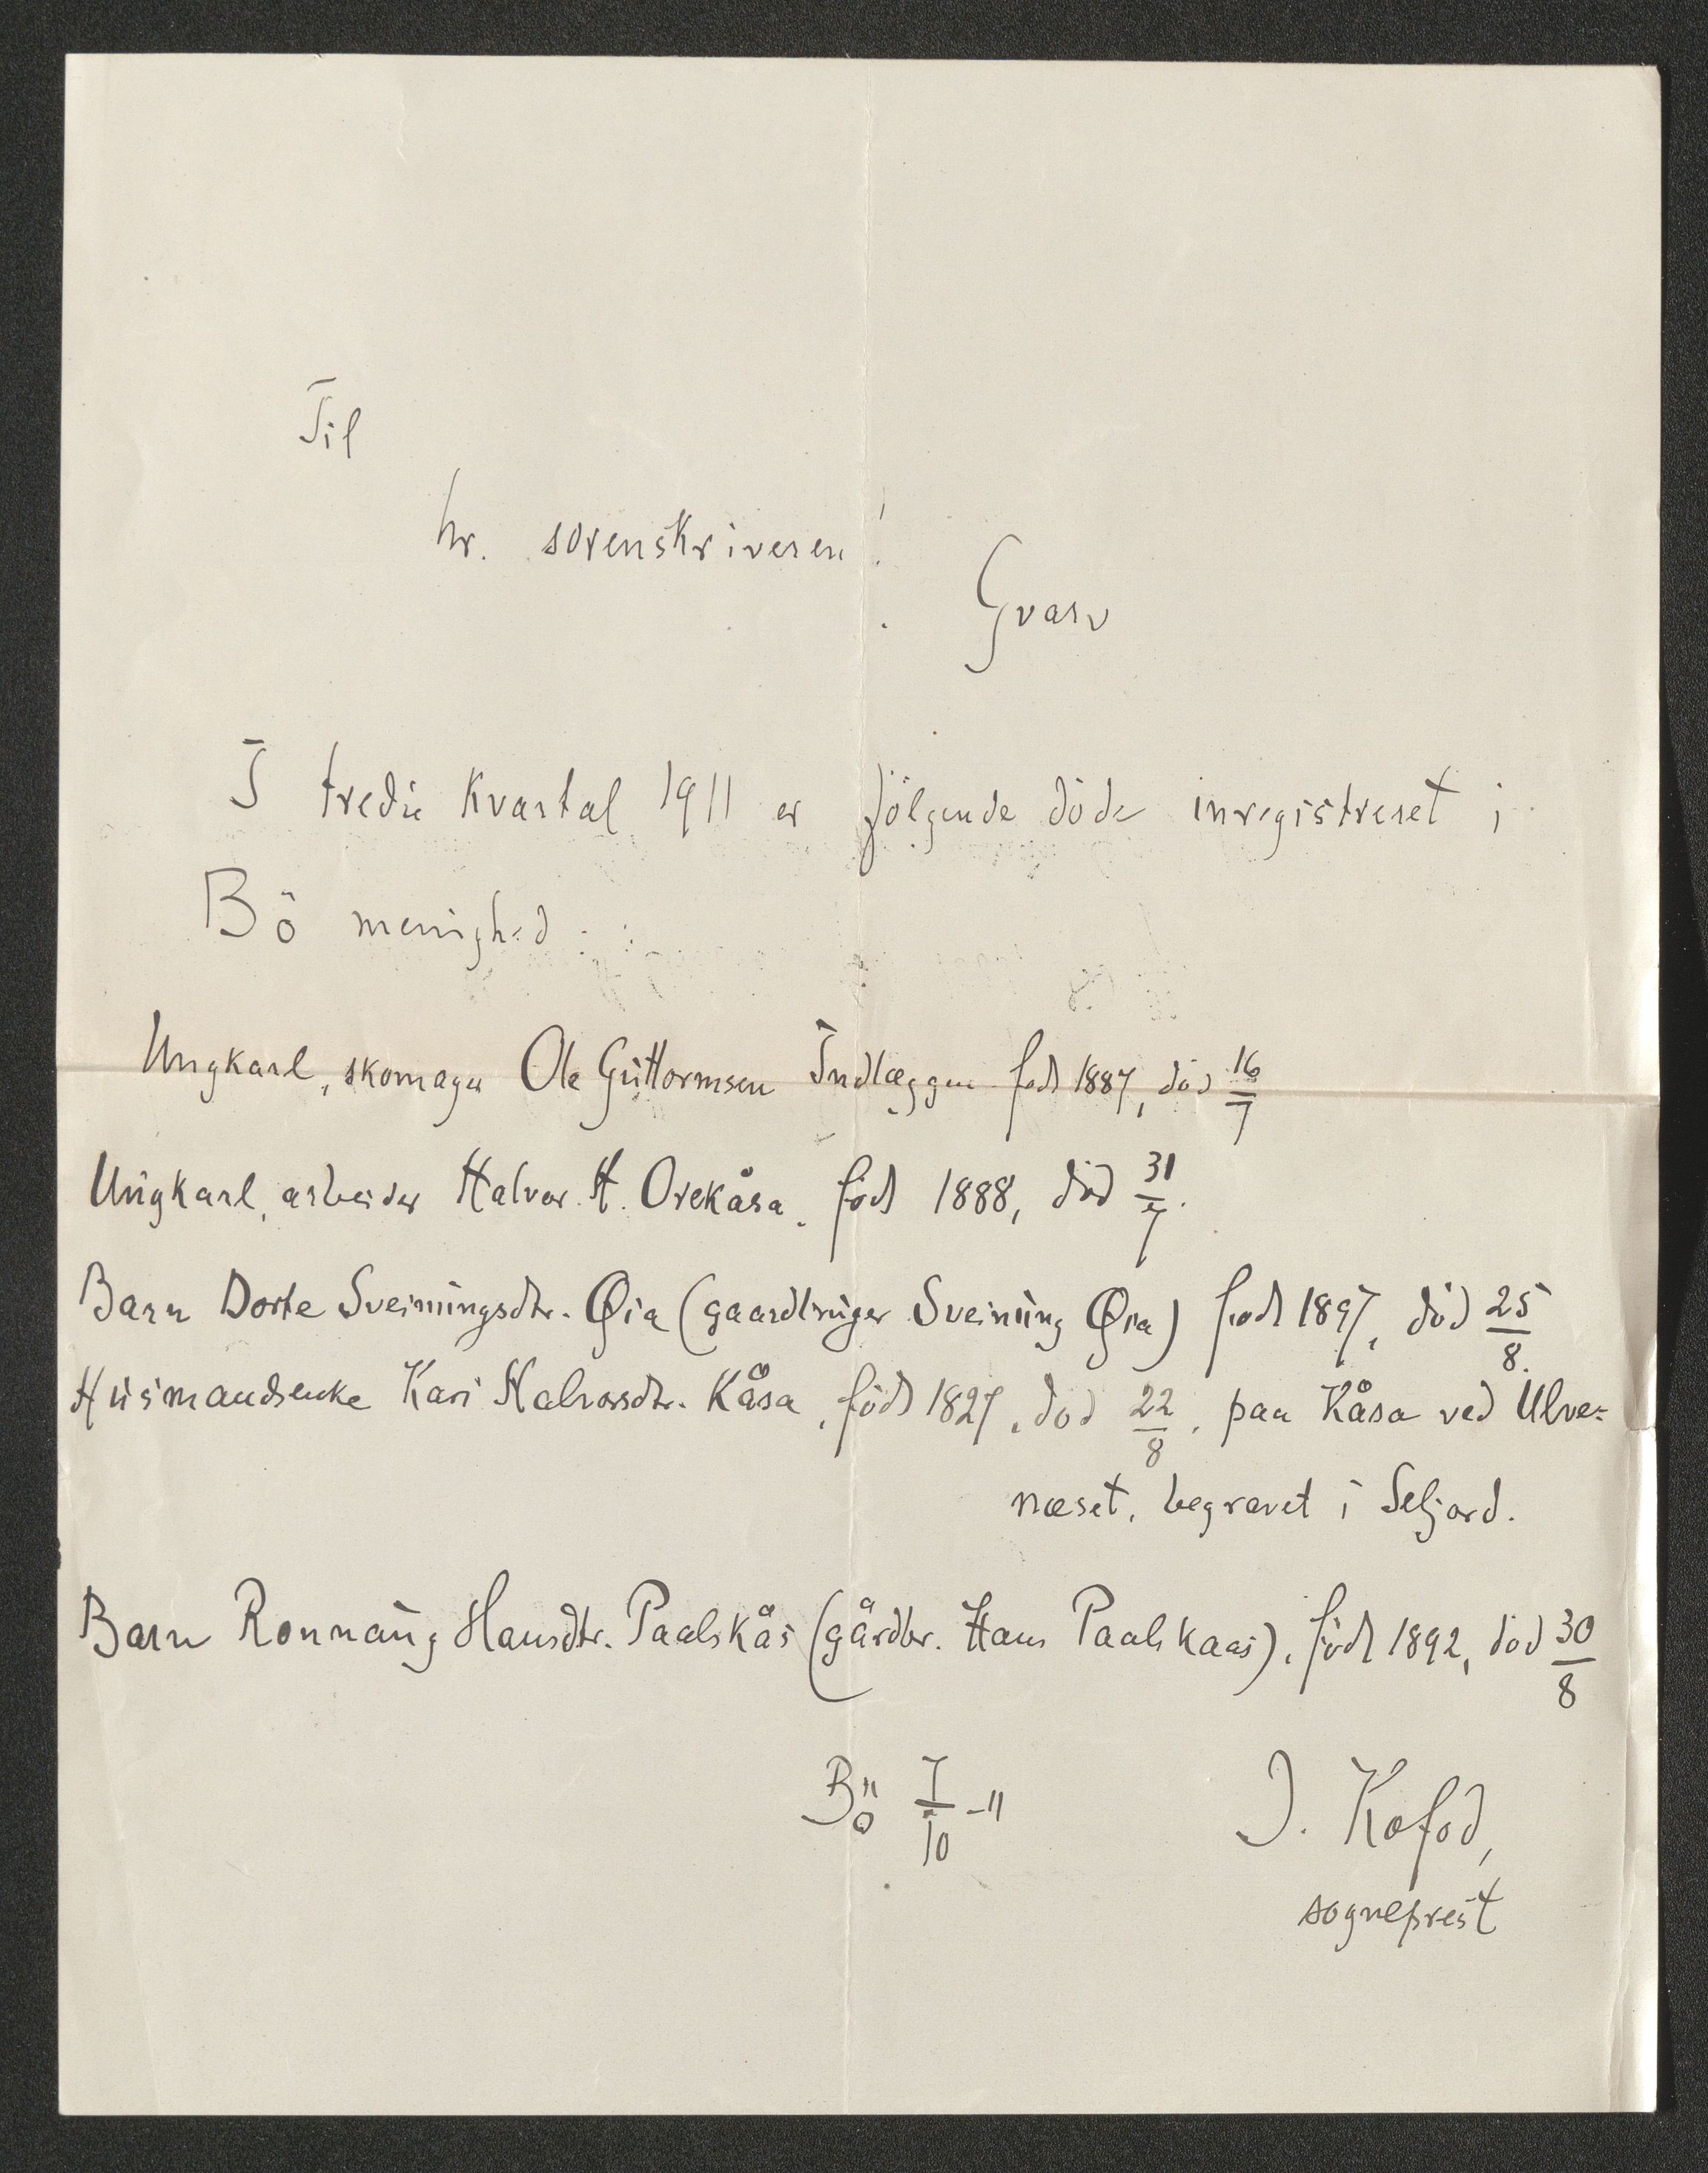 Til
hr. sorenskriveren!
Gvarv
I tredie kvartal 1911 er følgende døde inregistreret i
Bö menighed:
Ungkarl, skomager Ole Guttormsen Indlæggen født 1887, død 16/7
Ungkarl, arbeider Halvor H. Orekåsa, født 1888, død 31/7.
Barn Dorte Sveinungsdtr. Øia (gaardbruger Sveinung Øia) født 1897, død 25/8.
Husmandsenke Kari Halvorsdtr. Kåsa, født 1827, død 22/8, paa Kåsa ved Ulve=
næset, begravet i Seljord.
Barn Ronnaug Hansdtr. Paalskås (gårdbr. Hans Paalskaas), født 1892, død 30/8
Bö 7/10 -11
J. Kofod,
sogneprest